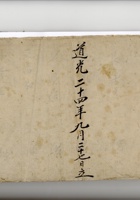 道光二十四年九月二十七日立